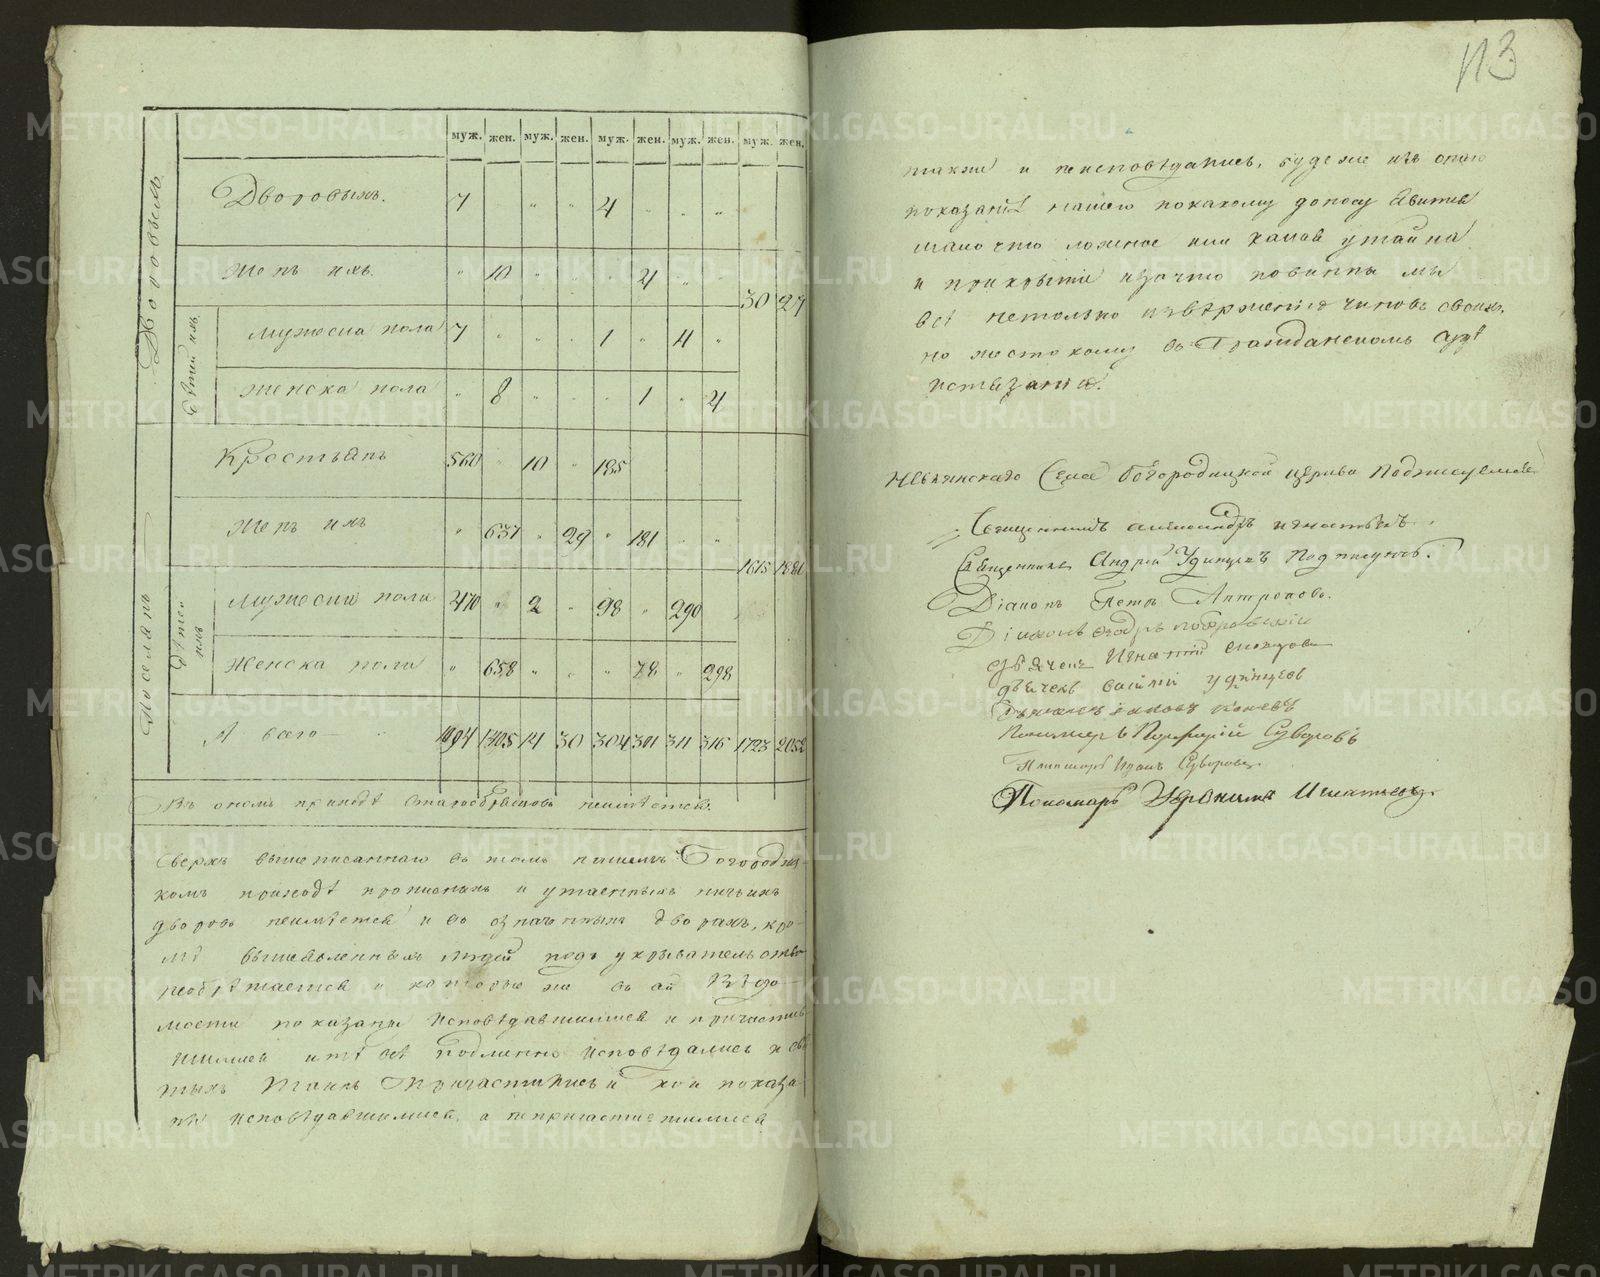 муж. жен. муж. жен. муж. жен. муж. жен. муж. жен.
Дворовыхъ
Дворовыхъ. 7 " " 4 " " "
женъ ихъ. " 10 " " " 4 " 30 27
Дѣтей ихъ
мужеска пола 7 " " " 1 " 4 "
женска пола " 8 " " " 1 " 4
Поселянъ
Крестьянъ 560 " 10 " 185
женъ ихъ " 637 " 29 " 181 " "
1615
Дѣтей ихъ
мужеска пола 470 " 2 " 98 " 290
женска пола " 658 " " " 78 " 298
А всего 1094 1405 14 30 304 301 311 316 1723 2052
Въ ономъ приходѣ старообрядцовъ неимѣется.
Сверхъ вышеписаннаго въ томъ нашемъ Богородиц-
комъ приходѣ прописныхъ и утаенныхъ ничьихъ
дворовъ неимѣется и во означенныхъ дворахъ, кро-
мѣ вышеявленныхъ людей подъ укрывательствомъ
необрѣтается и которые же въ сей вѣдо-
мости показаны исповѣдавшимися и причастив
шимися и тѣ всѣ подлинно исповѣдались и свя
тыхъ Таинъ причастились и кои показа
ны исповѣдавшимися, а непричастившимися
113
также и неисповѣдались, буде же изъ онаго
показанія нашего покакому доносу явится
мало что ложное или какая утайка
и прикрытіе изачто повинны мы
всѣ нетолько изверженію чиновъ своихъ,
но жестокому въ Гражданскомъ судѣ
истязанію.
Невьянскаго Села Богородицкой церкви Подписуемся
Священникъ Александръ Игнатьевъ.
Священникъ Андрей Удинцовъ Подписуюсь.
Діаконъ Петръ Антроповъ.
Діаконъ Ѳедоръ
Дьячекъ Игнатій
дьячекъ Василій удинцовъ
Дьячекъ Іаковъ
Пономарь Порфирій Суворовъ
Пономарь Иванъ Суворовъ.
Пономарь Иеронимъ Игнатьевъ.
METRIKI.GASO-URAL.RU